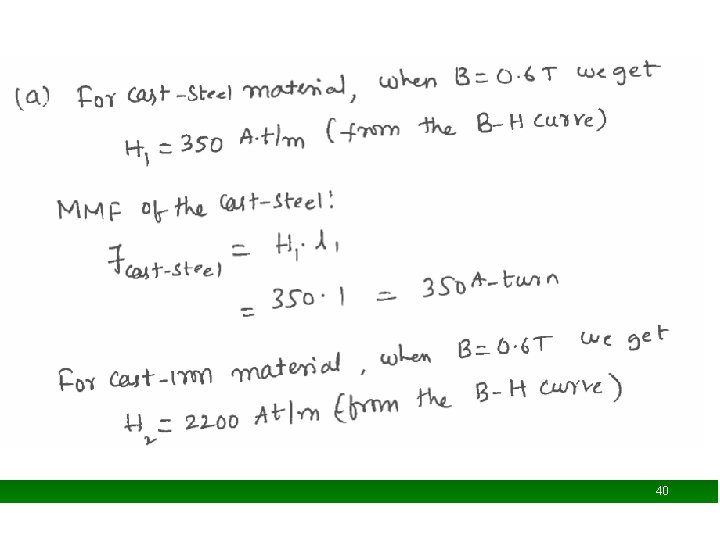 (a) For cast-steel material, when B = 0.6 T we get
H₁ = 350 A.t/m (from the B-H curve)
MMF of the cast-steel:
Ƒcast-steel = H₁. l₁
= 350. 1 = 350 A-turn
For cast-iron material, when B = 0.6T we get
H₂ = 2200 At/m (from the B-H curve)
40